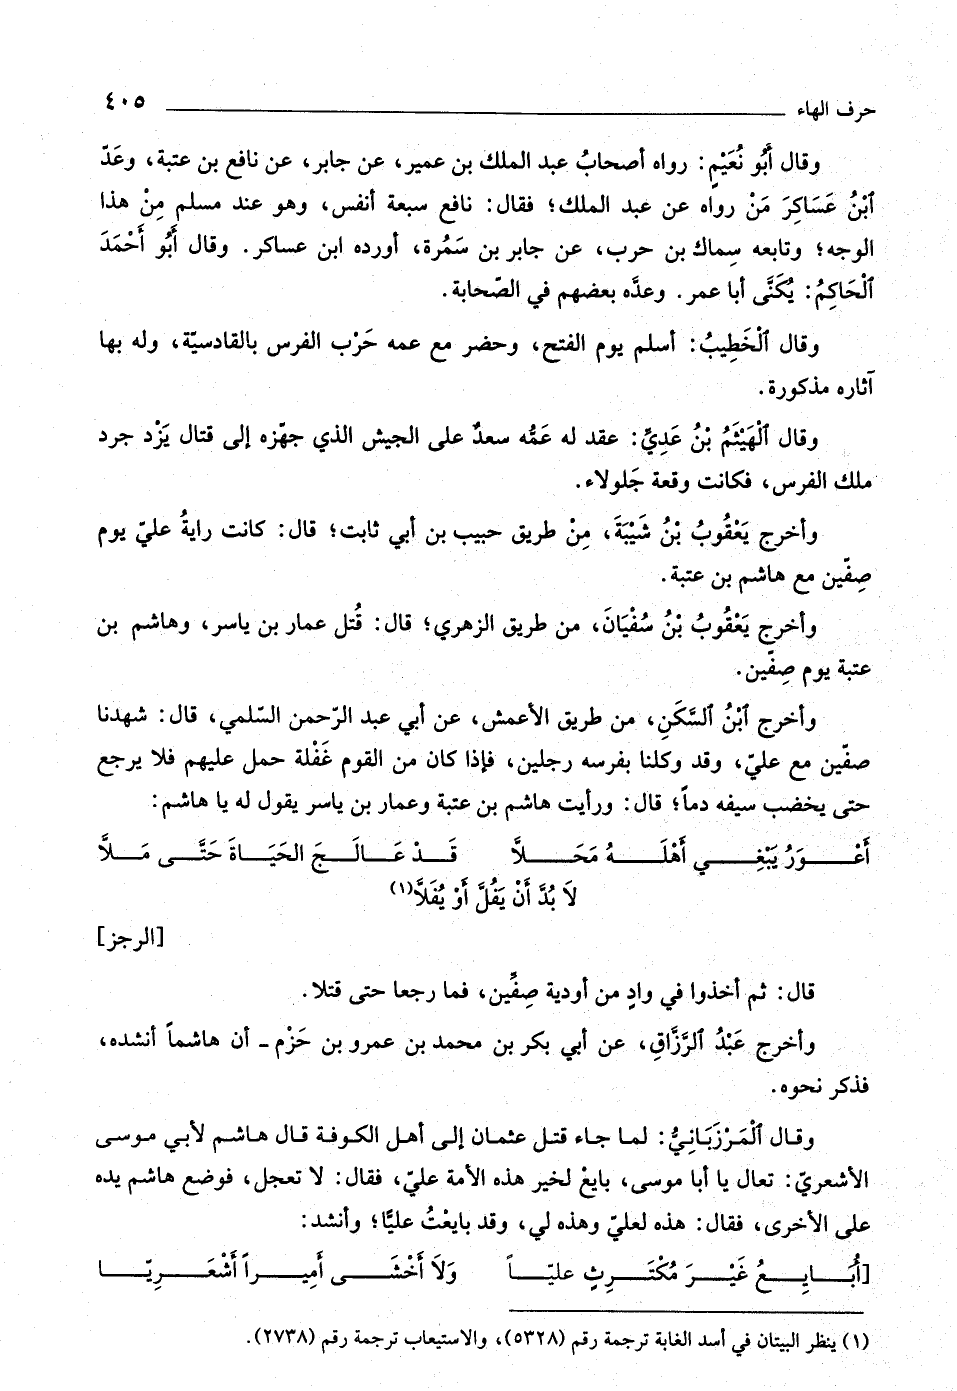 حرف الهاء ٤٠٥
وقال أَبُو نُعَيْمٍ: رواه أصحابُ عبد الملك بن عمير، عن جابر، عن نافع بن عتبة، وعَدّ
ٱبْنُ عَسَاكِرَ مَنْ رواه عن عبد الملك؛ فقال: نافع سبعة أنفس، وهو عند مسلم مِنْ هذا
الوجه؛ وتابعه سِماك بن حرب، عن جابر بن سَمُرة، أورده ابن عساكر. وقال أَبُو أَحْمَدَ
ٱلْحَاكِمُ: يُكَنَّى أبا عمر. وعدَّه بعضهم في الصّحابة.
وقال ٱلْخَطِيبُ: أسلم يوم الفتح، وحضر مع عمه حَرْب الفرس بالقادسيّة، وله بها
آثاره مذكورة.
وقال ٱلْهَيْثَمُ بْنُ عَدِيٍّ: عقد له عَمُّه سعدٌ على الجيش الذي جهّزه إلى قتال يَزْد جرد
ملك الفرس، فكانت وقعة جَلولاء.
وأخرج يَعْقُوبُ بْنُ شَيْبَةَ، مِنْ طريق حبيب بن أبي ثابت؛ قال: كانت رايةُ عليّ يوم
صِفّين مع هاشم بن عتبة.
وأخرج يَعْقُوبُ بْنُ سُفْيَانَ، من طريق الزهري؛ قال: قُتل عمار بن ياسر، وهاشم بن
عتبة يوم صِفّين.
وأخرج ٱبْنُ ٱلسَّكَنِ، من طريق الأعمش، عن أبي عبد الرّحمن السّلمي، قال: شهدنا
صفّين مع عليّ، وقد وكلنا بفرسه رجلين، فإذا كان من القوم غَفْلة حمل عليهم فلا يرجع
حتى يخضب سيفه دماً؛ قال: ورأيت هاشم بن عتبة وعمار بن ياسر يقول له يا هاشم:
أَعْــوَرُ يَبْغِــي أَهْلَــهُ مَحَــلاًّ قَــدْ عَــالَــجَ الحَيَــاةَ حَتَّــى مَــلاًّ
لاَ بُدَّ أَنْ يَفُلَّ أَوْ يُفَلاًّ(١)
[الرجز]
قال: ثم أخذوا في وادٍ من أودية صِفِّين، فما رجعا حتى قتلا.
وأخرج عَبْدُ ٱلرَّزَّاقِ، عن أبي بكر بن محمد بن عمرو بن حَزْم ـ أن هاشماً أنشده،
فذكر نحوه.
وقال ٱلْمَرْزَبَانِيُّ: لما جاء قتل عثمان إلى أهل الكوفة قال هاشم لأبي موسى
الأشعريّ: تعال يا أبا موسى، بايعْ لخير هذه الأمة عليّ، فقال: لا تعجل، فوضع هاشم يده
على الأخرى، فقال: هذه لعليّ وهذه لي، وقد بايعْتُ عليًّا؛ وأنشد:
[أُبَــايِــعُ غَيْــرَ مُكْتَــرِثٍ عليّــاً وَلاَ أَخْشَــى أَمِيــراً أَشْعَــرِيّــا
(١) ينظر البيتان في أسد الغابة ترجمة رقم (٥٣٢٨)، والاستيعاب ترجمة رقم (٢٧٣٨).